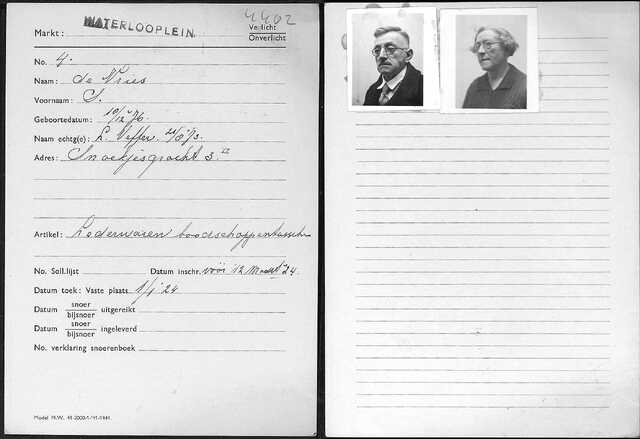 4402
Markt: WATERLOOPLEIN
Verlicht
Onverlicht
No. 4.
Naam: de Vries
Voornaam: S.
Geboortedatum: 10/12 76
Naam echtg(e): L. Veffer 21/8 73.
Adres: Snoekjesgracht 3 II
Artikel: Lederwaren boodschappentassche
No. Soll.lijst Datum inschr. vóór 12 Maart 24
Datum toek: Vaste plaats 1/1 24
Datum snoer bijsnoer uitgereikt
Datum snoer bijsnoer ingeleverd
No. verklaring snoerenboek
Model M.W.